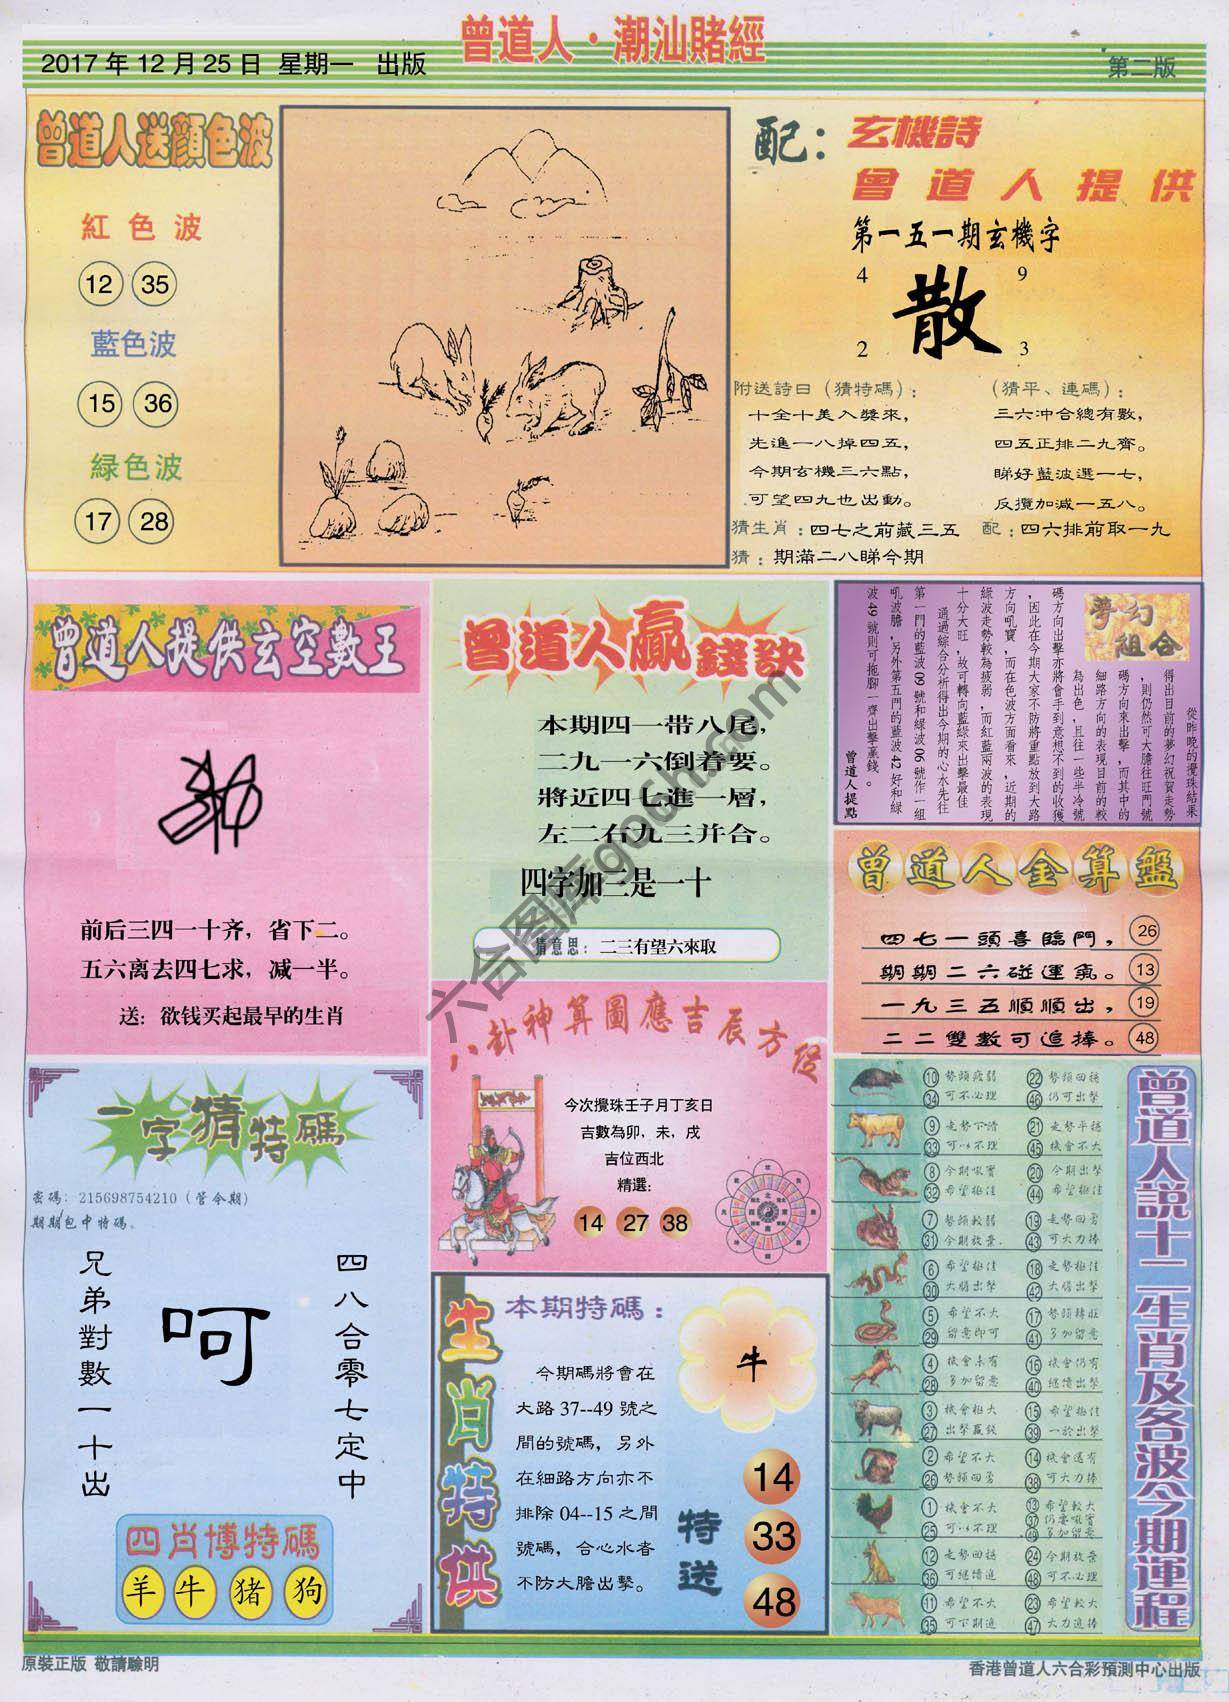 曾道人·潮汕賭經
2017年12月25日 星期一 出版
第二版
曾道人送顏色波
紅色波
12 35
藍色波
15 36
緑色波
17 28
配：玄機詩
曾道人提供
第一五一期玄機字
4 9
散
2 3
附送詩曰（猜特碼）：
十全十美入獎來，
先進一八掉四五，
今期玄機三六點，
可望四九也出動。
（猜平、連碼）：
三六冲合總有數，
四五正排二九齊。
睇好藍波選一七，
反攬加減一五八。
猜生肖：四七之前藏三五
配：四六排前取一九
猜：期滿二八睇今期
曾道人提供玄空數王
前后三四一十齐，省下二。
五六离去四七求，减一半。
送：欲钱买起最早的生肖
曾道人贏錢訣
本期四一带八尾，
二九一六倒着要。
將近四七進一層，
左二右九三并合。
四字加三是一十
猜意思：二三有望六來取
夢幻組合
從昨晚的攪珠結果
得出目前的夢幻祝賀走勢
，則仍然可大膽往旺門號
碼方向來出擊，而其中的
細路方向的表現目前的較
為出色，且往一些半冷號
碼方向出擊亦將會手到意想不到的收獲
，因此在今期大家不防將重點放到大路
方向吼寶，而在色波方面看來，近期的
綠波走勢較為疲弱，而紅藍兩波的表現
十分大旺，故可轉向藍綠來出擊最佳
通過綜合分析得出今期的心水先往
第一門的藍波09號和緑波06號作一組
吼波膽，另外第五門的藍波42好和綠
波49號則可拖腳一齊出擊贏錢。
曾道人提點
曾道人金算盤
四七一頭喜臨門， 26
期期二六碰運氣。 13
一九三五順順出， 19
二二雙數可追捧。 48
八卦神算圖應吉辰方位
今次攪珠壬子月丁亥日
吉數為卯，未，戌
吉位西北
精選：
14 27 38
一字猜特碼
密碼：215698754210（管今期）
期期包中特碼。
兄弟對數一十出
呵
四八合零七定中
四肖博特碼
羊 牛 猪 狗
生肖特供
本期特碼：
今期碼將會在
大路37--49號之
間的號碼，另外
在細路方向亦不
排除04--15之間
號碼，合心水者
不防大膽出擊。
牛
特送
14
33
48
曾道人説十二生肖及各波今期運程
10 勢頭疲弱 22 勢頭回穩
34 可不必理 46 仍可出擊
9 走勢下滑 21 走勢平穩
33 可以不理 45 機會不大
8 今期吼寶 20 今期出擊
32 希望極佳 44 希望極佳
7 勢頭較弱 19 走勢回勇
31 今期放棄 43 可大力捧
6 希望極佳 18 走勢極佳
30 大膽出擊 42 大膽出擊
5 希望不大 17 勢頭轉旺
29 留意即可 41 多加留意
4 機會未有 16 機會仍有
28 多加留意 40 繼續出擊
3 機會極大 15 希望極佳
27 出擊贏錢 39 一於出擊
2 希望不大 14 機會還有
26 勢頭回勇 38 可大力捧
1 機會不大 13 希望較大
25 可以不理 37 仍要吼寶
49 多加留意
12 走勢回穩 24 今期放棄
36 可繼續追 48 可不必理
11 希望不大 23 希望較大
35 可下期追 47 大力追捧
六合图库gooch.com
原裝正版 敬請驗明
香港曾道人六合彩預測中心出版